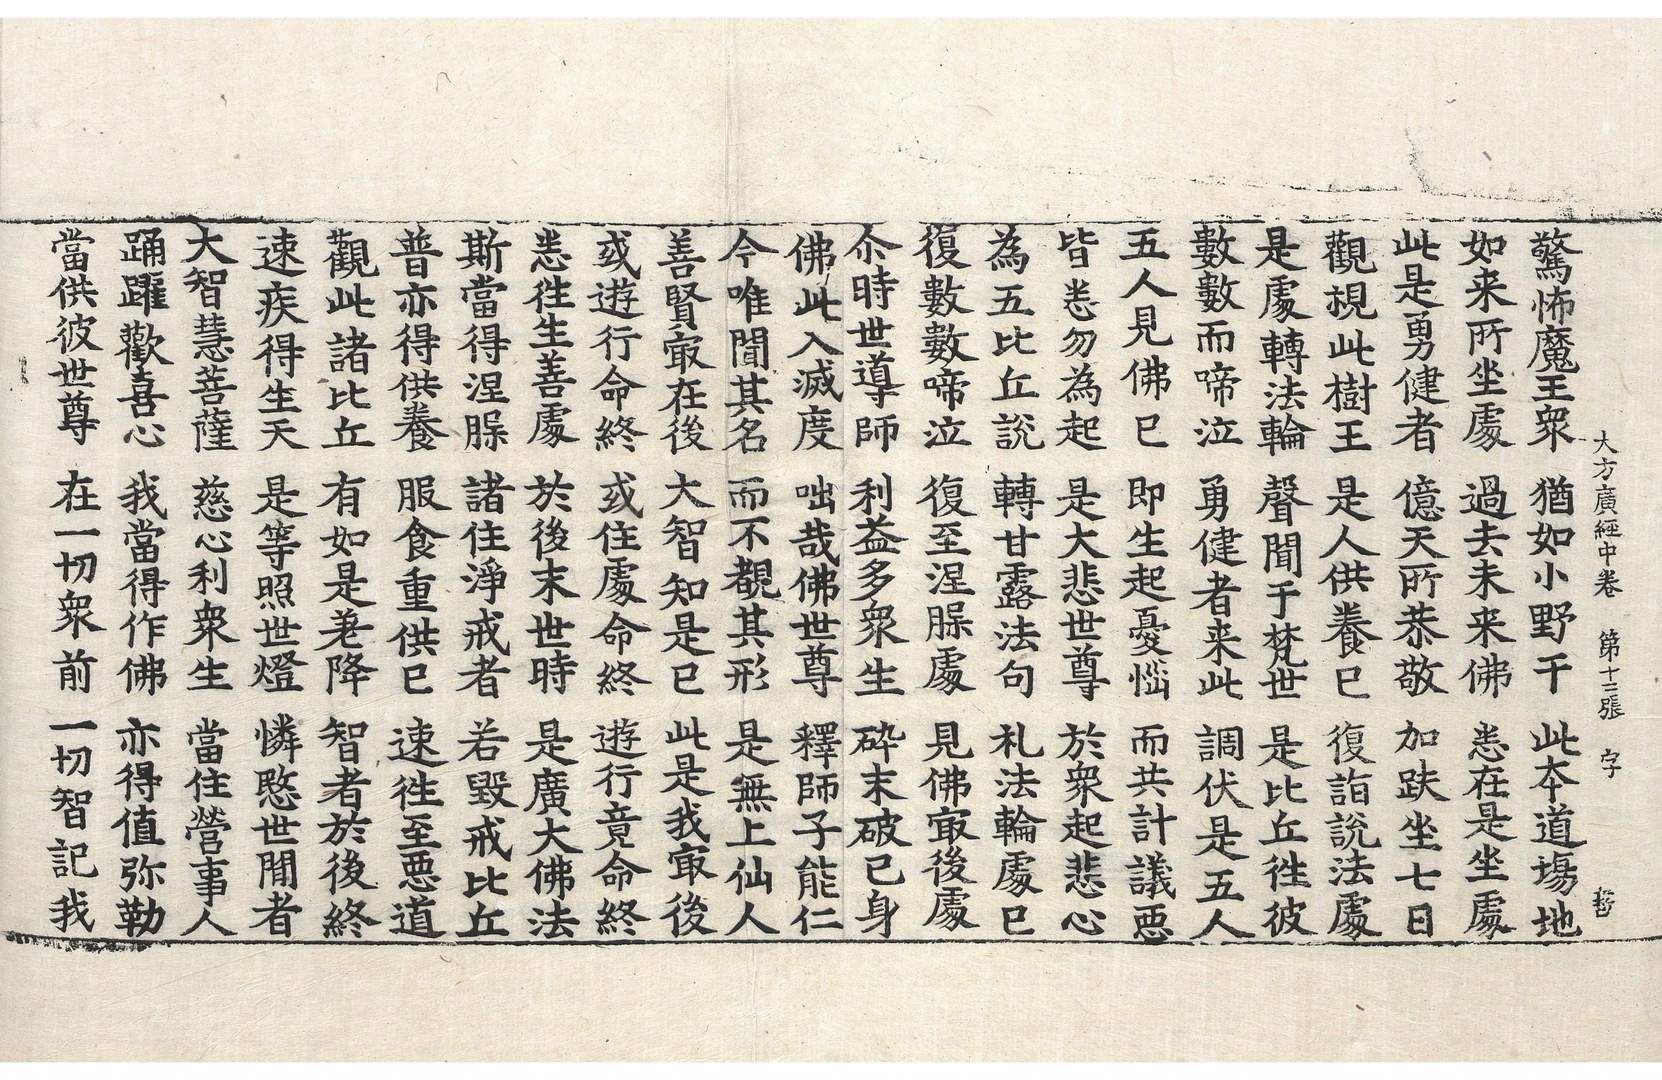 大方廣經中卷　第十二張　字
驚怖魔王衆　猶如小野干　此本道場地
如来所坐處　過去未来佛　悉在是坐處
此是勇健者　億天所恭敬　加趺坐七日
觀視此樹王　是人供養已　復詣説法處
是處轉法輪　聲聞于梵世　是比丘徃彼
數數而啼泣　勇健者来此　調伏是五人
五人見佛已　即生起憂惱　而共計議惡
皆悉勿為起　是大悲世尊　於衆起悲心
為五比丘説　轉甘露法句　礼法輪處已
復數數啼泣　復至涅槃處　見佛㝡後處
尒時世導師　利益多衆生　碎末破已身
佛此入滅度　咄哉佛世尊　釋師子能仁
今唯聞其名　而不覩其形　是無上仙人
善賢㝡在後　大智知是已　此是我㝡後
或遊行命終　或住處命終　遊行竟命終
悉徃生善處　於後末世時　是廣大佛法
斯當得涅槃　諸住淨戒者　若毀戒比丘
普亦得供養　服食重供已　速徃至惡道
觀此諸比丘　有如是差降　智者於後終
速疾得生天　是等照世燈　憐愍世聞者
大智慧菩薩　慈心利衆生　當住營事人
踊躍歡喜心　我當得作佛　亦得值弥勒
當供彼世尊　在一切衆前　一切智記我